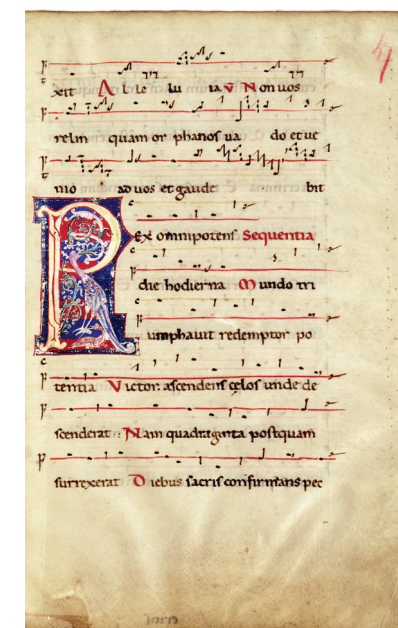 xit Alleluia V Non vos
relinquam orphanos vado et ve
nio ad vos et gaudebit
Rex omnipotens Sequentia
die hodierna Mundo tri
umphavit redemptor po
tentia Victor ascendens celos unde de
scenderat Nam quadraginta postquam
surrexerat Diebus sacris confirmans pec